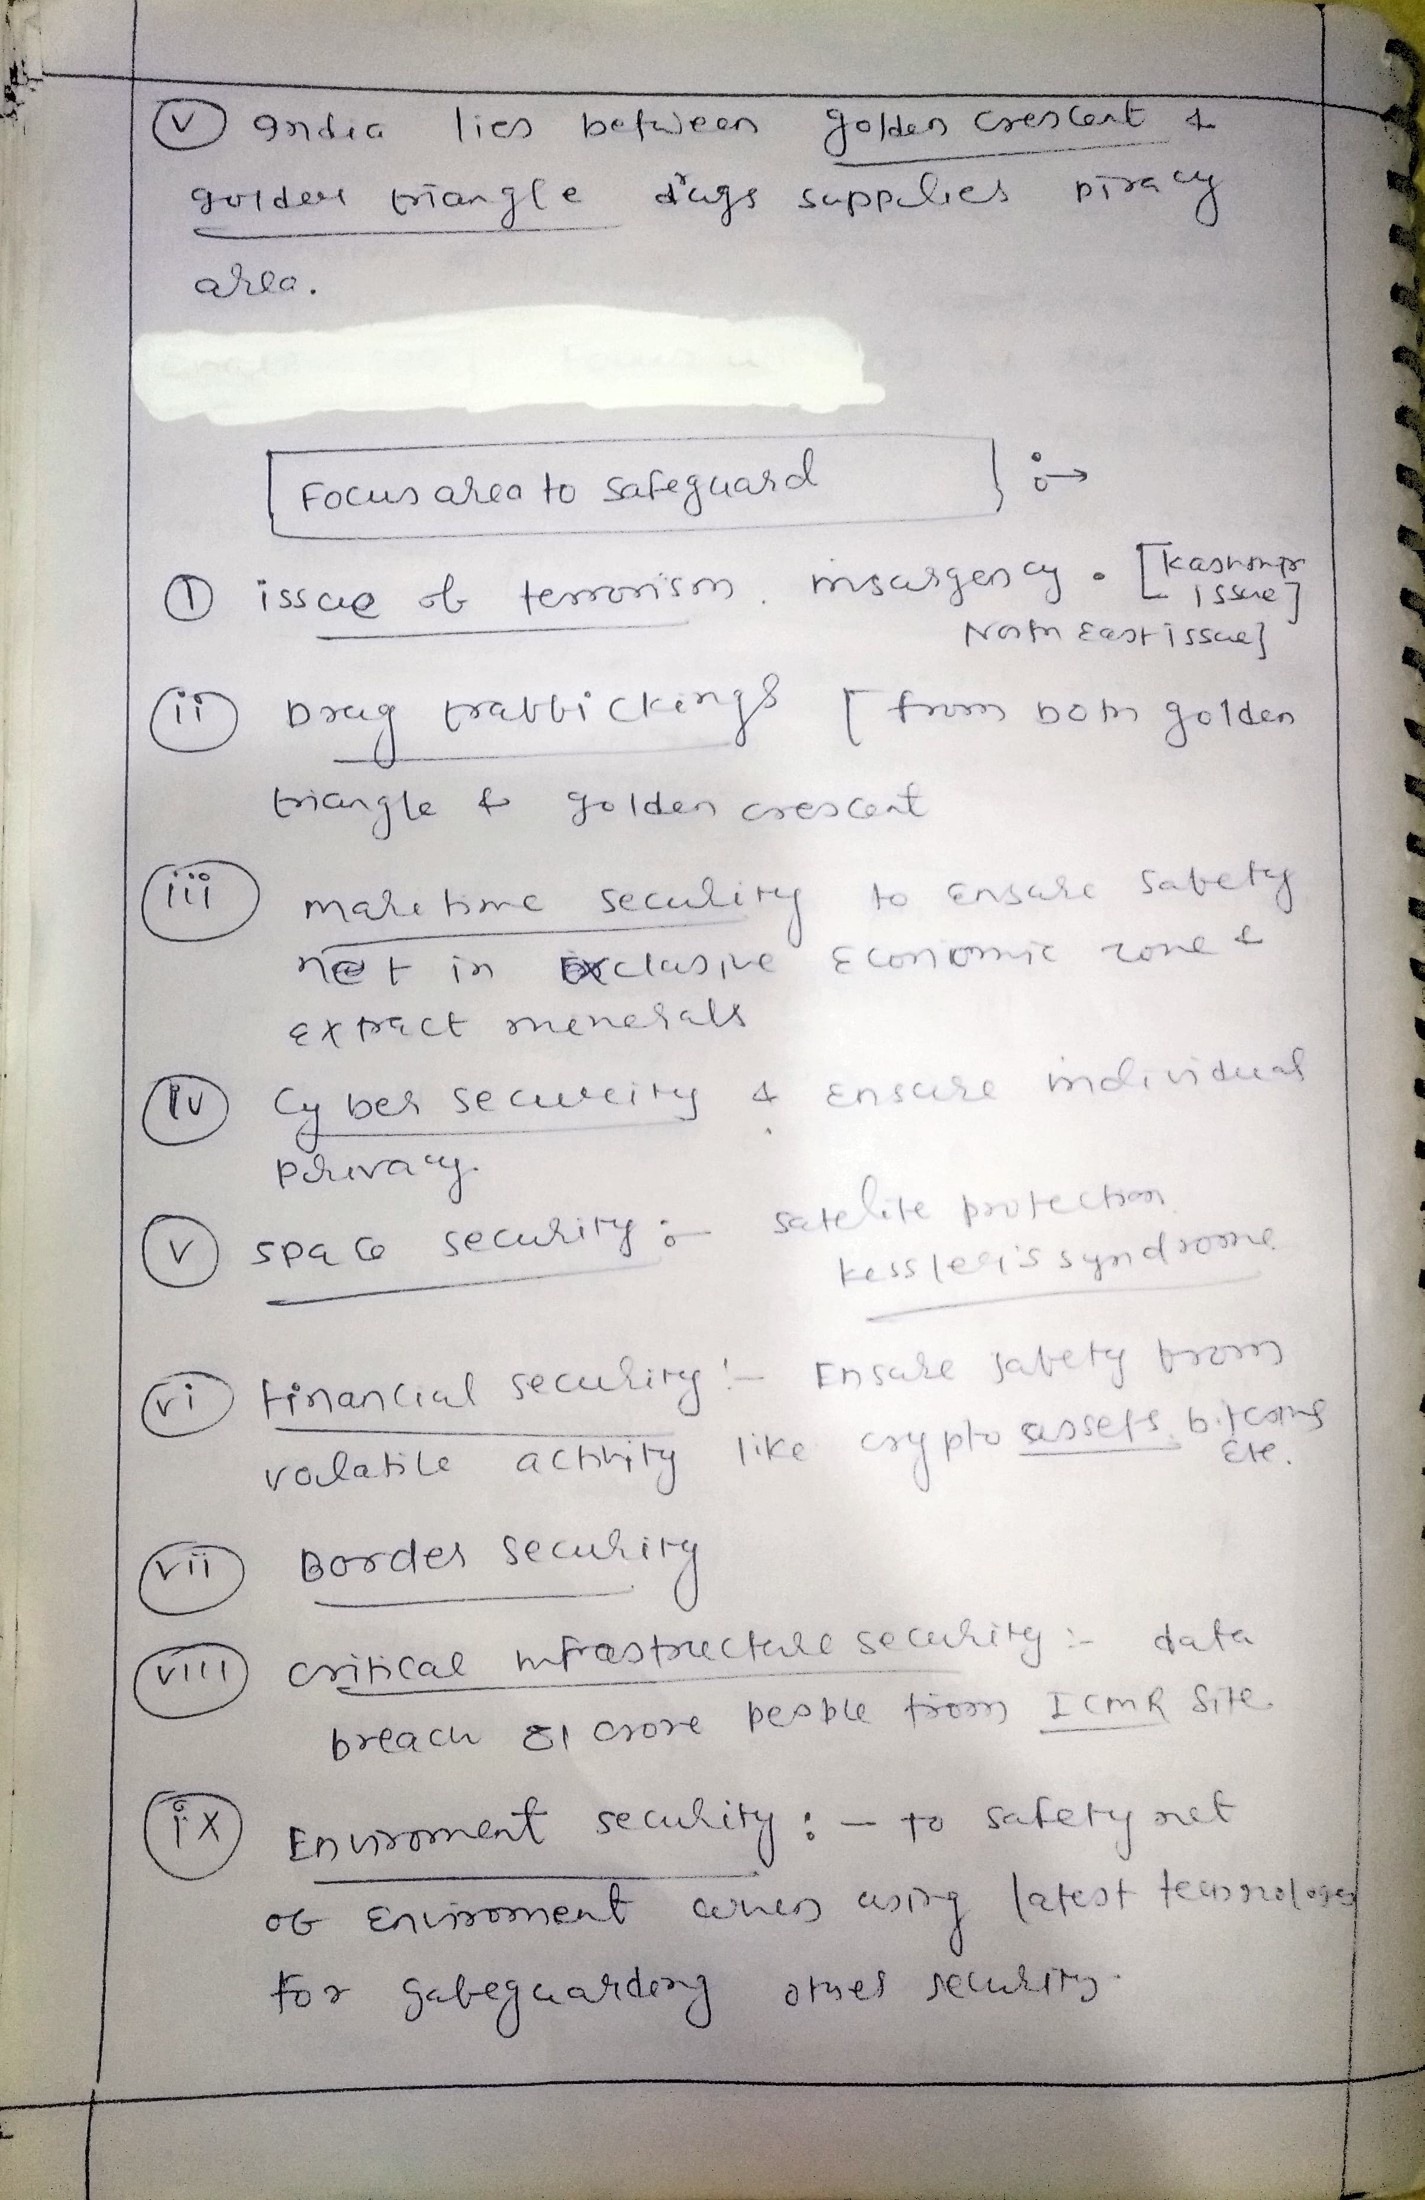 (v) India lies between golden crescent &
golden triangle drugs supplies piracy
area.
Focus area to safeguard :→
(i) issue of terrorism, insurgency. [Kashmir
issue]
North East issue]
(ii) Drug traffickings [from both golden
triangle & golden crescent
(iii) maretime security to ensure safety
net in Exclusive Economic zone &
extract menerals
(iv) Cyber security & Ensure individual
privacy.
(v) space security :- satelite protection
Kessler's syndrome
(vi) Financial security :- Ensure safety from
volatile activity like crypto assets, bitcoins
Etc.
(vii) Border security
(viii) critical infrastructure security :- data
breach 81 crore people from ICMR Site.
(ix) Enviroment security :- to safety net
of Enviroment when using latest technologies
for safeguarding other security.